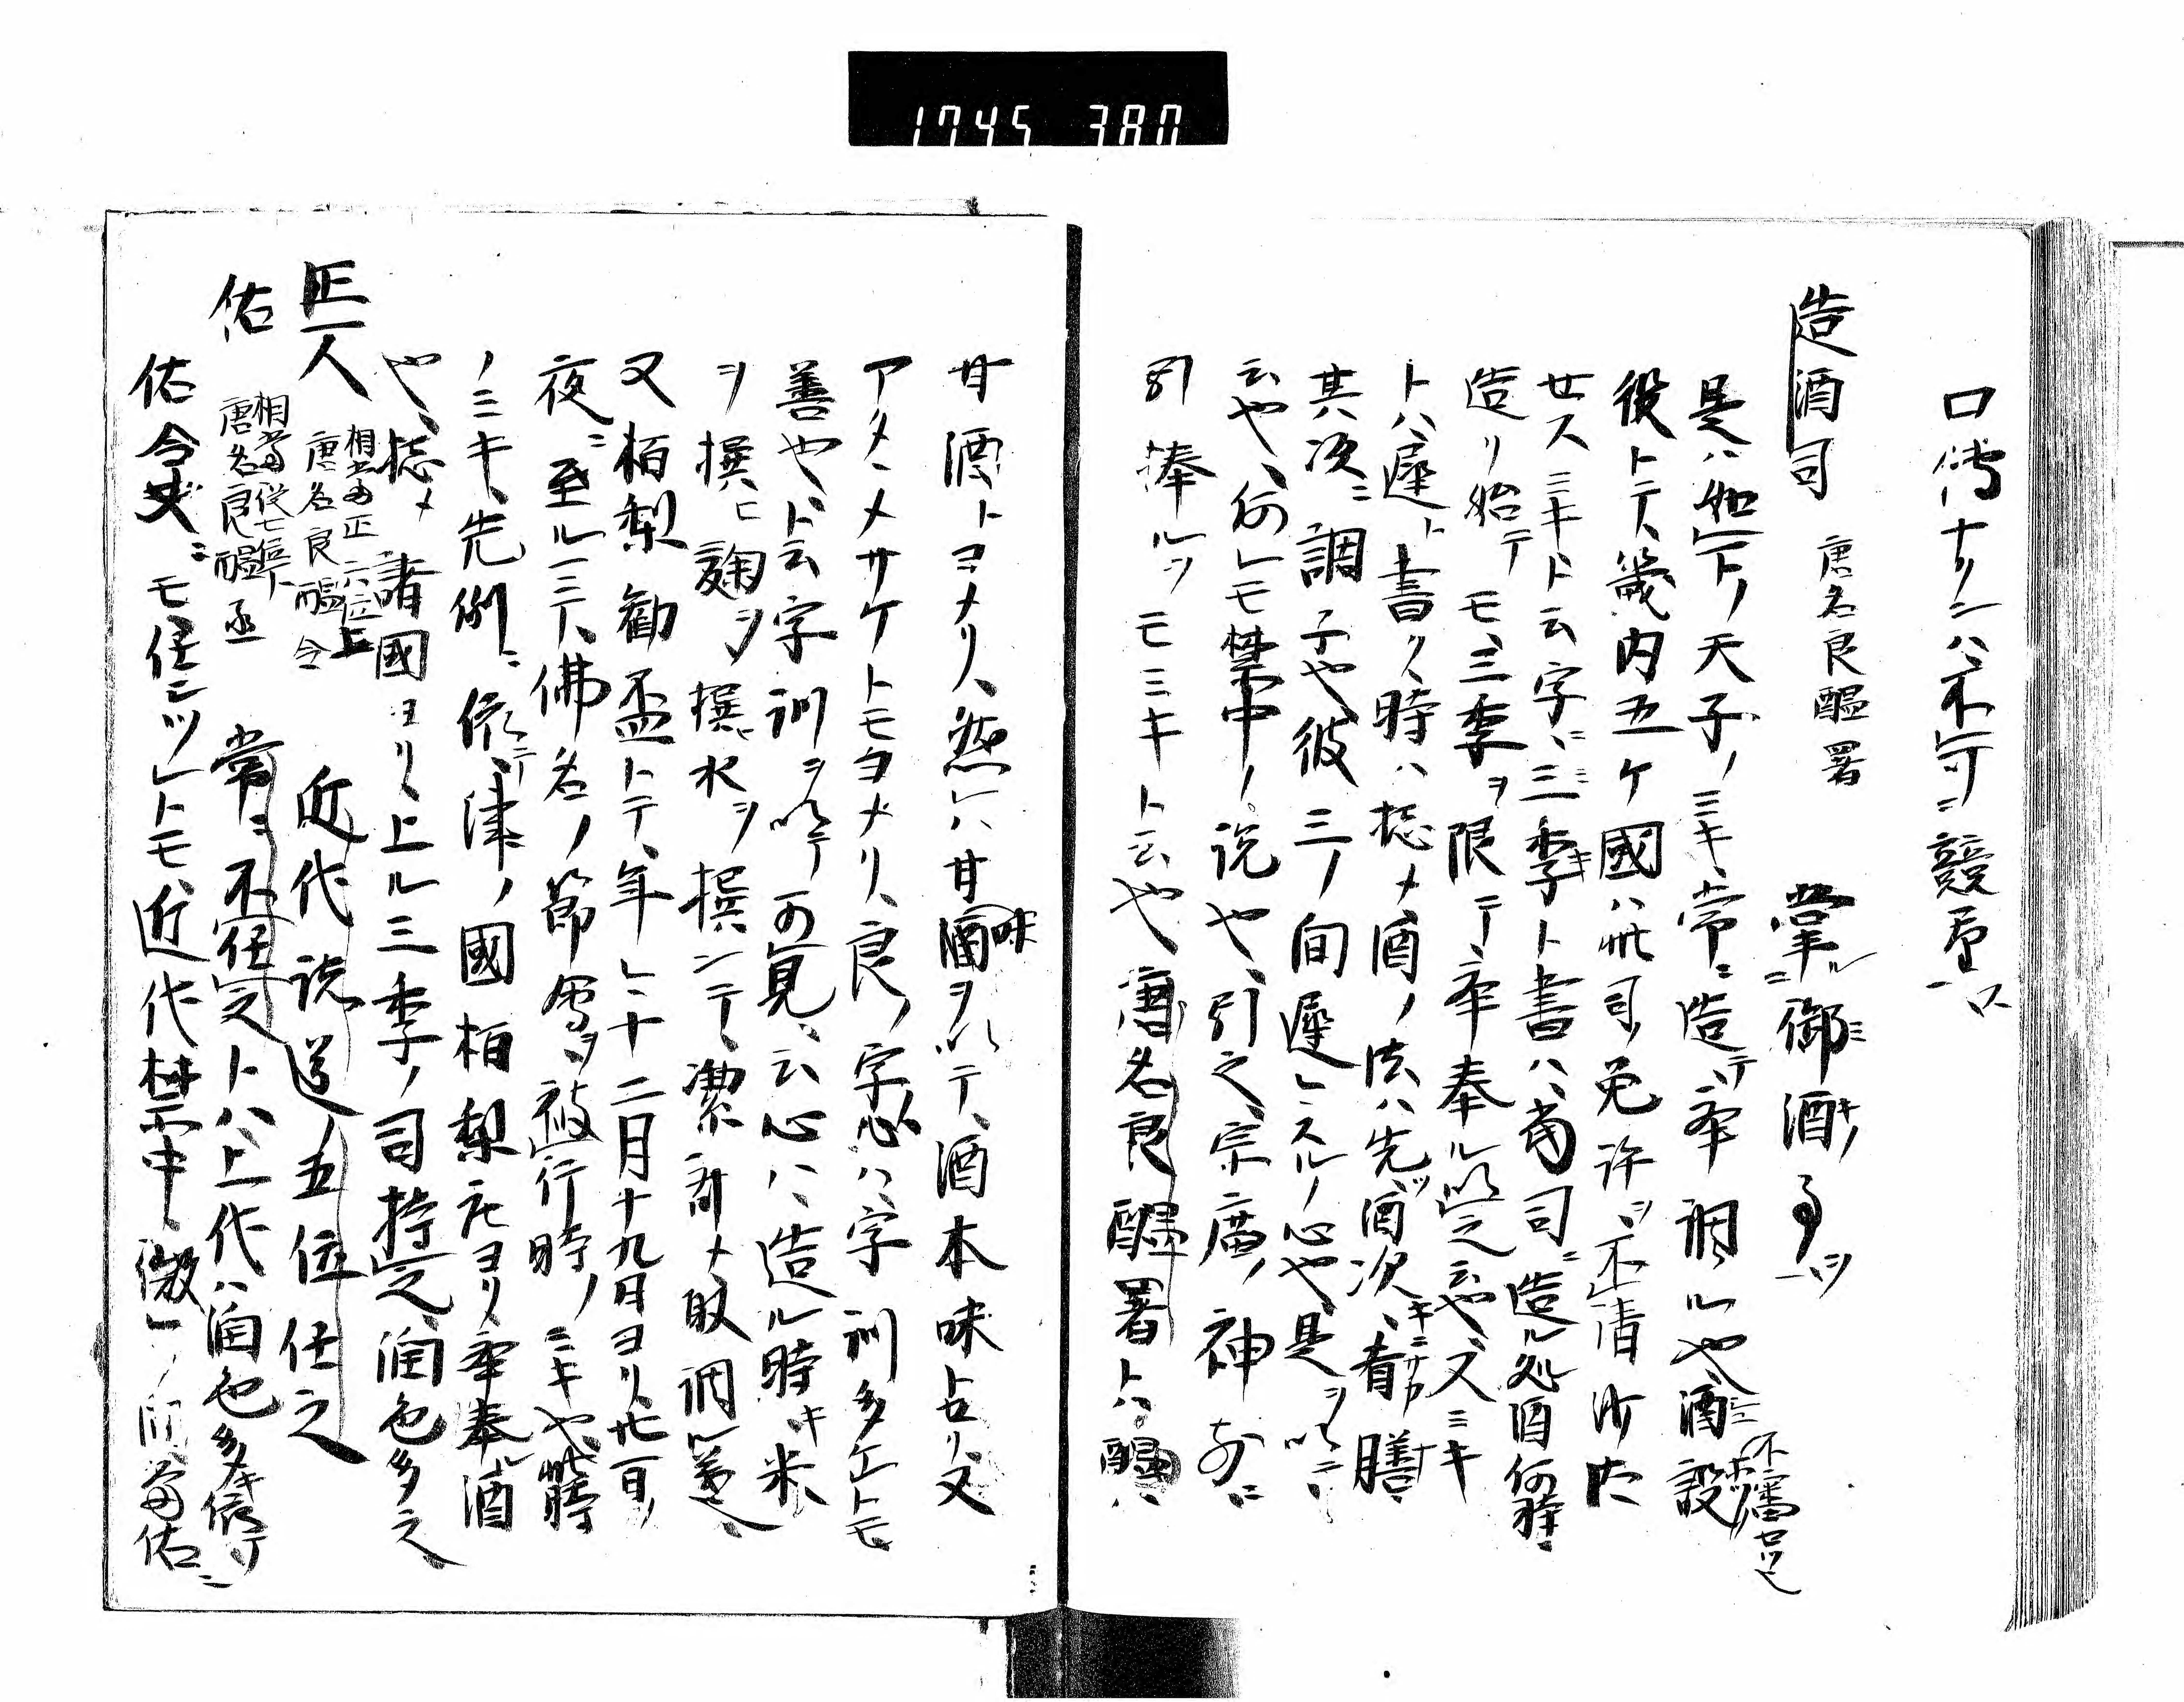 1745 380
口傳ナリシハ不可競看一ス
造酒司 唐名良醞署 掌ル御酒ノ事ヲ
是ハ如上ノ天子ノミキ常ニ造テ奉調ル也酒設
役トテ畿内五ケ國ハ此司免許ヲ不請沙汰
廿スミキト云字ニ三季ト書ハ當司ニ造ル処酒何時
造リ始テモ三季ヲ限テ奉奉ル以之云也又ミキ
トハ遅ト書ク時ハ惣メ酒ノ法ハ先酒次肴膳
其次ニ調子也彼三ノ間遅レスルノ心也是ヲ以ニ
云也何レモ禁中ノ説也引之宗廣ノ神前ニ
引捧ルヲモミキト云也唐名良醞署トハ醞ハ
甘酒トヨメリ然レハ甘味ヲ以テ酒本味トセリ又
アタヽメサケトモヨメリ良ノ字心ハ字訓多ケトモ
善也ト云字訓ヲ以テ可見云心ハ造ル時米
ヲ撰ヒ麹ヲ撰水ヲ撰シテ潔齋メ取調ル義也
又柏梨勧盃トテ年々十二月十九日ヨリ廿一日ノ
夜ニ至ルニテ佛名ノ節會ヲ被行時ノミキ也此時
ノミキ先例ニ依テ津ノ國柏梨庄ヨリ奉奉ル酒
也惣メ諸國ヨリ上ル三季ノ司持之潤色多之
正一人 相當正六位上 唐名良醞令 近代説送ノ五位任之
佑 相當従七位下 唐名良醞丞 常ニ不任之トハ上代ハ潤色多キ依テ
佑令史ニモ任シツレトモ近代禁中ノ微々ノ間當佑ニ